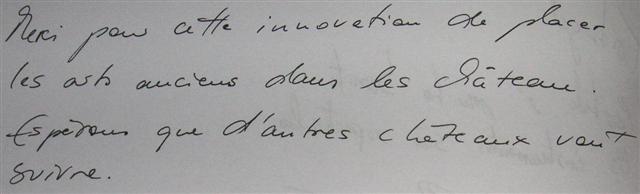 Merci pour cette innovation de placer
les arts anciens dans les château.
Espérons que d'autres châteaux vont
suivre.